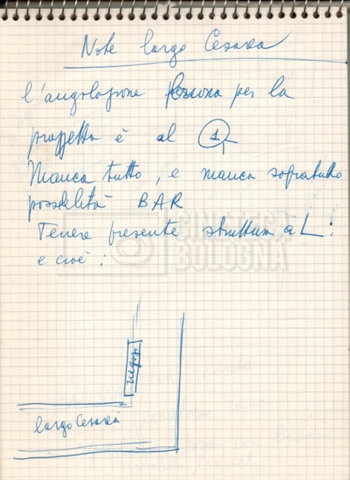 Note largo Cesarea
l'angolazione buona per la
progetto è al 1
Manca tutto, e manca sopratutto
possibilità BAR
Tenere presente struttura a L:
e cioè:
negozi
largo Cesarea
CINETECA
BOLOGNA